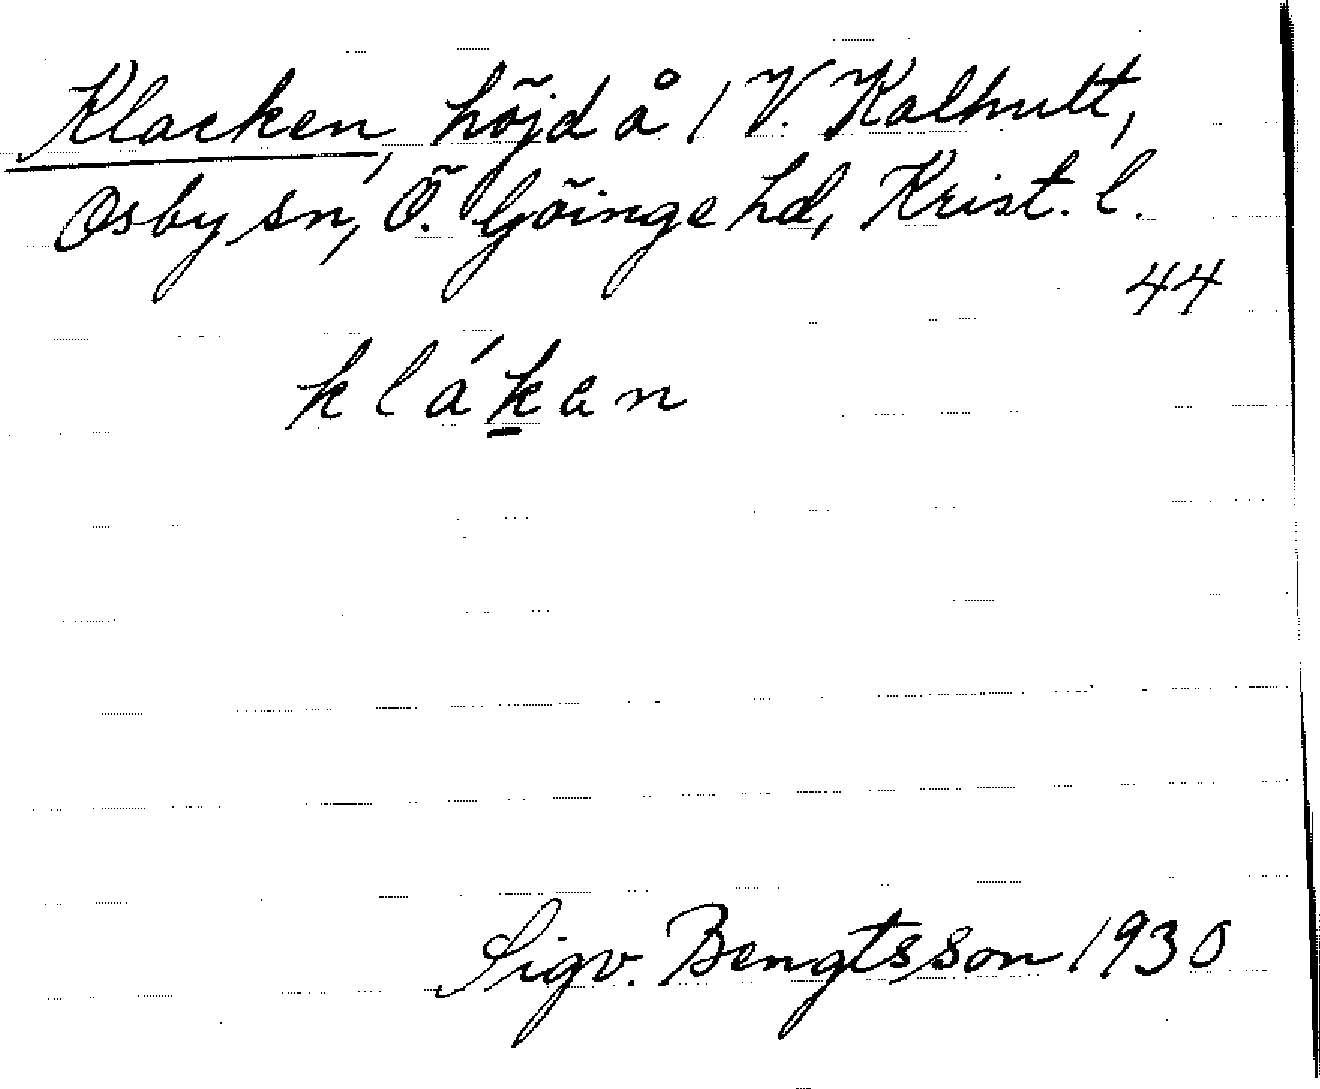 Klacken, höjd å 1 V. Kalhult,
Osby sn, Ö. Göinge hd, Krist. l.
44
klák̲en
Sigv. Bengtsson 1930